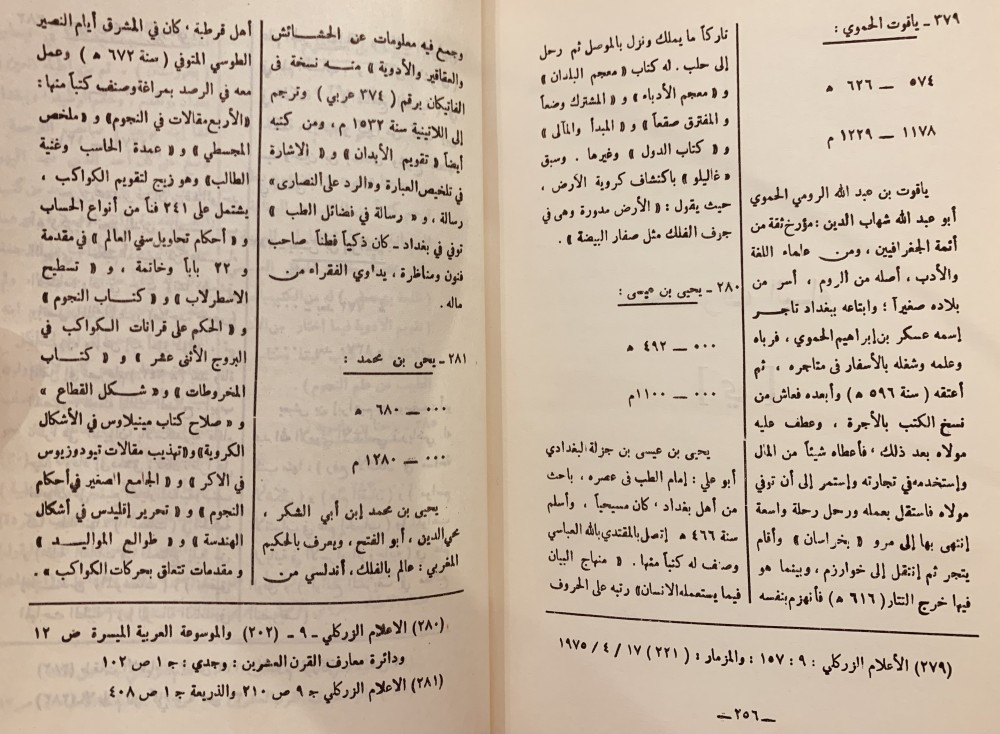 ٣٧٩ ـ ياقوت الحموي :
٥٧٤ — ٦٢٦ ه
١١٧٨ — ١٢٢٩ م
ياقوت بن عبد الله الرومي الحموي
أبو عبد الله شهاب الدين : مؤرخ ثقة من
أئمة الجغرافيين ، ومن علماء اللغة
والأدب ، أصله من الروم ، أسر من
بلاده صغيراً : وابتاعه ببغداد تاجر
إسمه عسكر بن إبراهيم الحموي ، فرباه
وعلمه وشغله بالأسفار في متاجره ، ثم
أعتقه ( سنة ٥٩٦ ه ) وأبعده فعاش من
نسخ الكتب بالأجرة ، وعطف عليه
مولاه بعد ذلك ، فأعطاه شيئاً من المال
وإستخدمه في تجارته وإستمر إلى أن توفي
مولاه فاستقل بعمله ورحل رحلة واسعة
إنتهى بها إلى مرو « بخراسان » وأقام
يتجر ثم إنتقل إلى خوارزم ، وبينما هو
فيها خرج التتار ( ٦١٦ ه ) فأنهزم بنفسه
تاركاً ما يملك ونزل بالموصل ثم رحل
إلى حلب . له كتاب « معجم البلدان »
و « معجم الأدباء » و « المشترك وضعاً
و المفترق صقعاً » و « المبدأ والمآل »
و « كتاب الدول » وغيرها . وسبق
« غاليلو » باكتشاف كروية الأرض ،
حيث يقول : « الأرض مدورة وهي في
جوف الفلك مثل صفار البيضة » .
٢٨٠ ـ يحيى بن عيسى :
٠٠٠ — ٤٩٢ ه
٠٠٠ — ١١٠٠م
يحيى بن عيسى بن جزلة البغدادي
أبو علي : إمام الطب في عصره ، باحث
من أهل بغداد ، كان مسيحياً ، وأسلم
سنة ٤٦٦ ه إتصل بالمقتدي بالله العباسي
وصنف له كتباً منها . « منهاج البيان
فيما يستعمله الانسان » رتبه على الحروف
(٢٧٩) الأعلام الزركلي : ٩ : ١٥٧ : والمزمار : ( ٢٢١ ) ١٧ / ٤ / ١٩٧٥
ـ ٢٥٦ ـ
وجمع فيه معلومات عن الحشائش
والعقاقير والأدوية » منه نسخة في
الفاتيكان برقم ( ٣٧٤ عربي ) وترجم
إلى اللاتينية سنة ١٥٣٢ م ، ومن كتبه
أيضاً « تقويم الأبدان » و « الاشارة
في تلخيص العبارة و«الرد على النصارى»
رسالة ، و « رسالة في فضائل الطب »
توفي في بغداد ـ كان ذكياً فطناً صاحب
فنون ومناظرة ، يداوي الفقراء من
ماله .
٢٨١ ـ يحيى بن محمد :
٠٠٠ — ٦٨٠ ه
٠٠٠ — ١٢٨٠ م
يحيى بن محمد إبن أبي الشكر ،
محي الدين ، أبو الفتح ، ويعرف بالحكيم
المغربي : عالم بالفلك، أندلسي من
أهل قرطبة ، كان في المشرق أيام النصير
الطوسي المتوفي ( سنة ٦٧٢ ه ) وعمل
معه في الرصد بمراغة وصنف كتباً منها :
«الأربع مقالات في النجوم» و « ملخص
المجسطي » و « عمدة الحاسب وغنية
الطالب» وهو زيج لتقويم الكواكب ،
يشتمل على ٢٤١ فناً من أنواع الحساب
و « أحكام تحاويل سني العالم » في مقدمة
و ٢٢ باباً وخاتمة ، و « تسطيح
الاسطرلاب » و « كتاب النجوم »
و « الحكم على قرانات الكواكب في
البروج الأثنى عشر » و « كتاب
المخروطات » و « شكل القطاع »
و « صلاح كتاب مينيلاوس في الأشكال
الكروية» و«تهذيب مقالات تيودوزيوس
في الاكر » و « الجامع الصغير في أحكام
النجوم » و « تحرير إقليدس في أشكال
الهندسة » و « طوالع المواليد »
و مقدمات تتعلق بحركات الكواكب » .
(٢٨٠) الاعلام الزركلي ـ ٩ ـ (٢٠٢) والموسوعة العربية الميسرة ض ١٢
ودائرة معارف القرن العشرين : وجدي : ج ١ ص ١٠٢
(٢٨١) الاعلام الزركلي ج ٩ ص ٢١٠ والذريعة ج ١ ص ٤٠٨